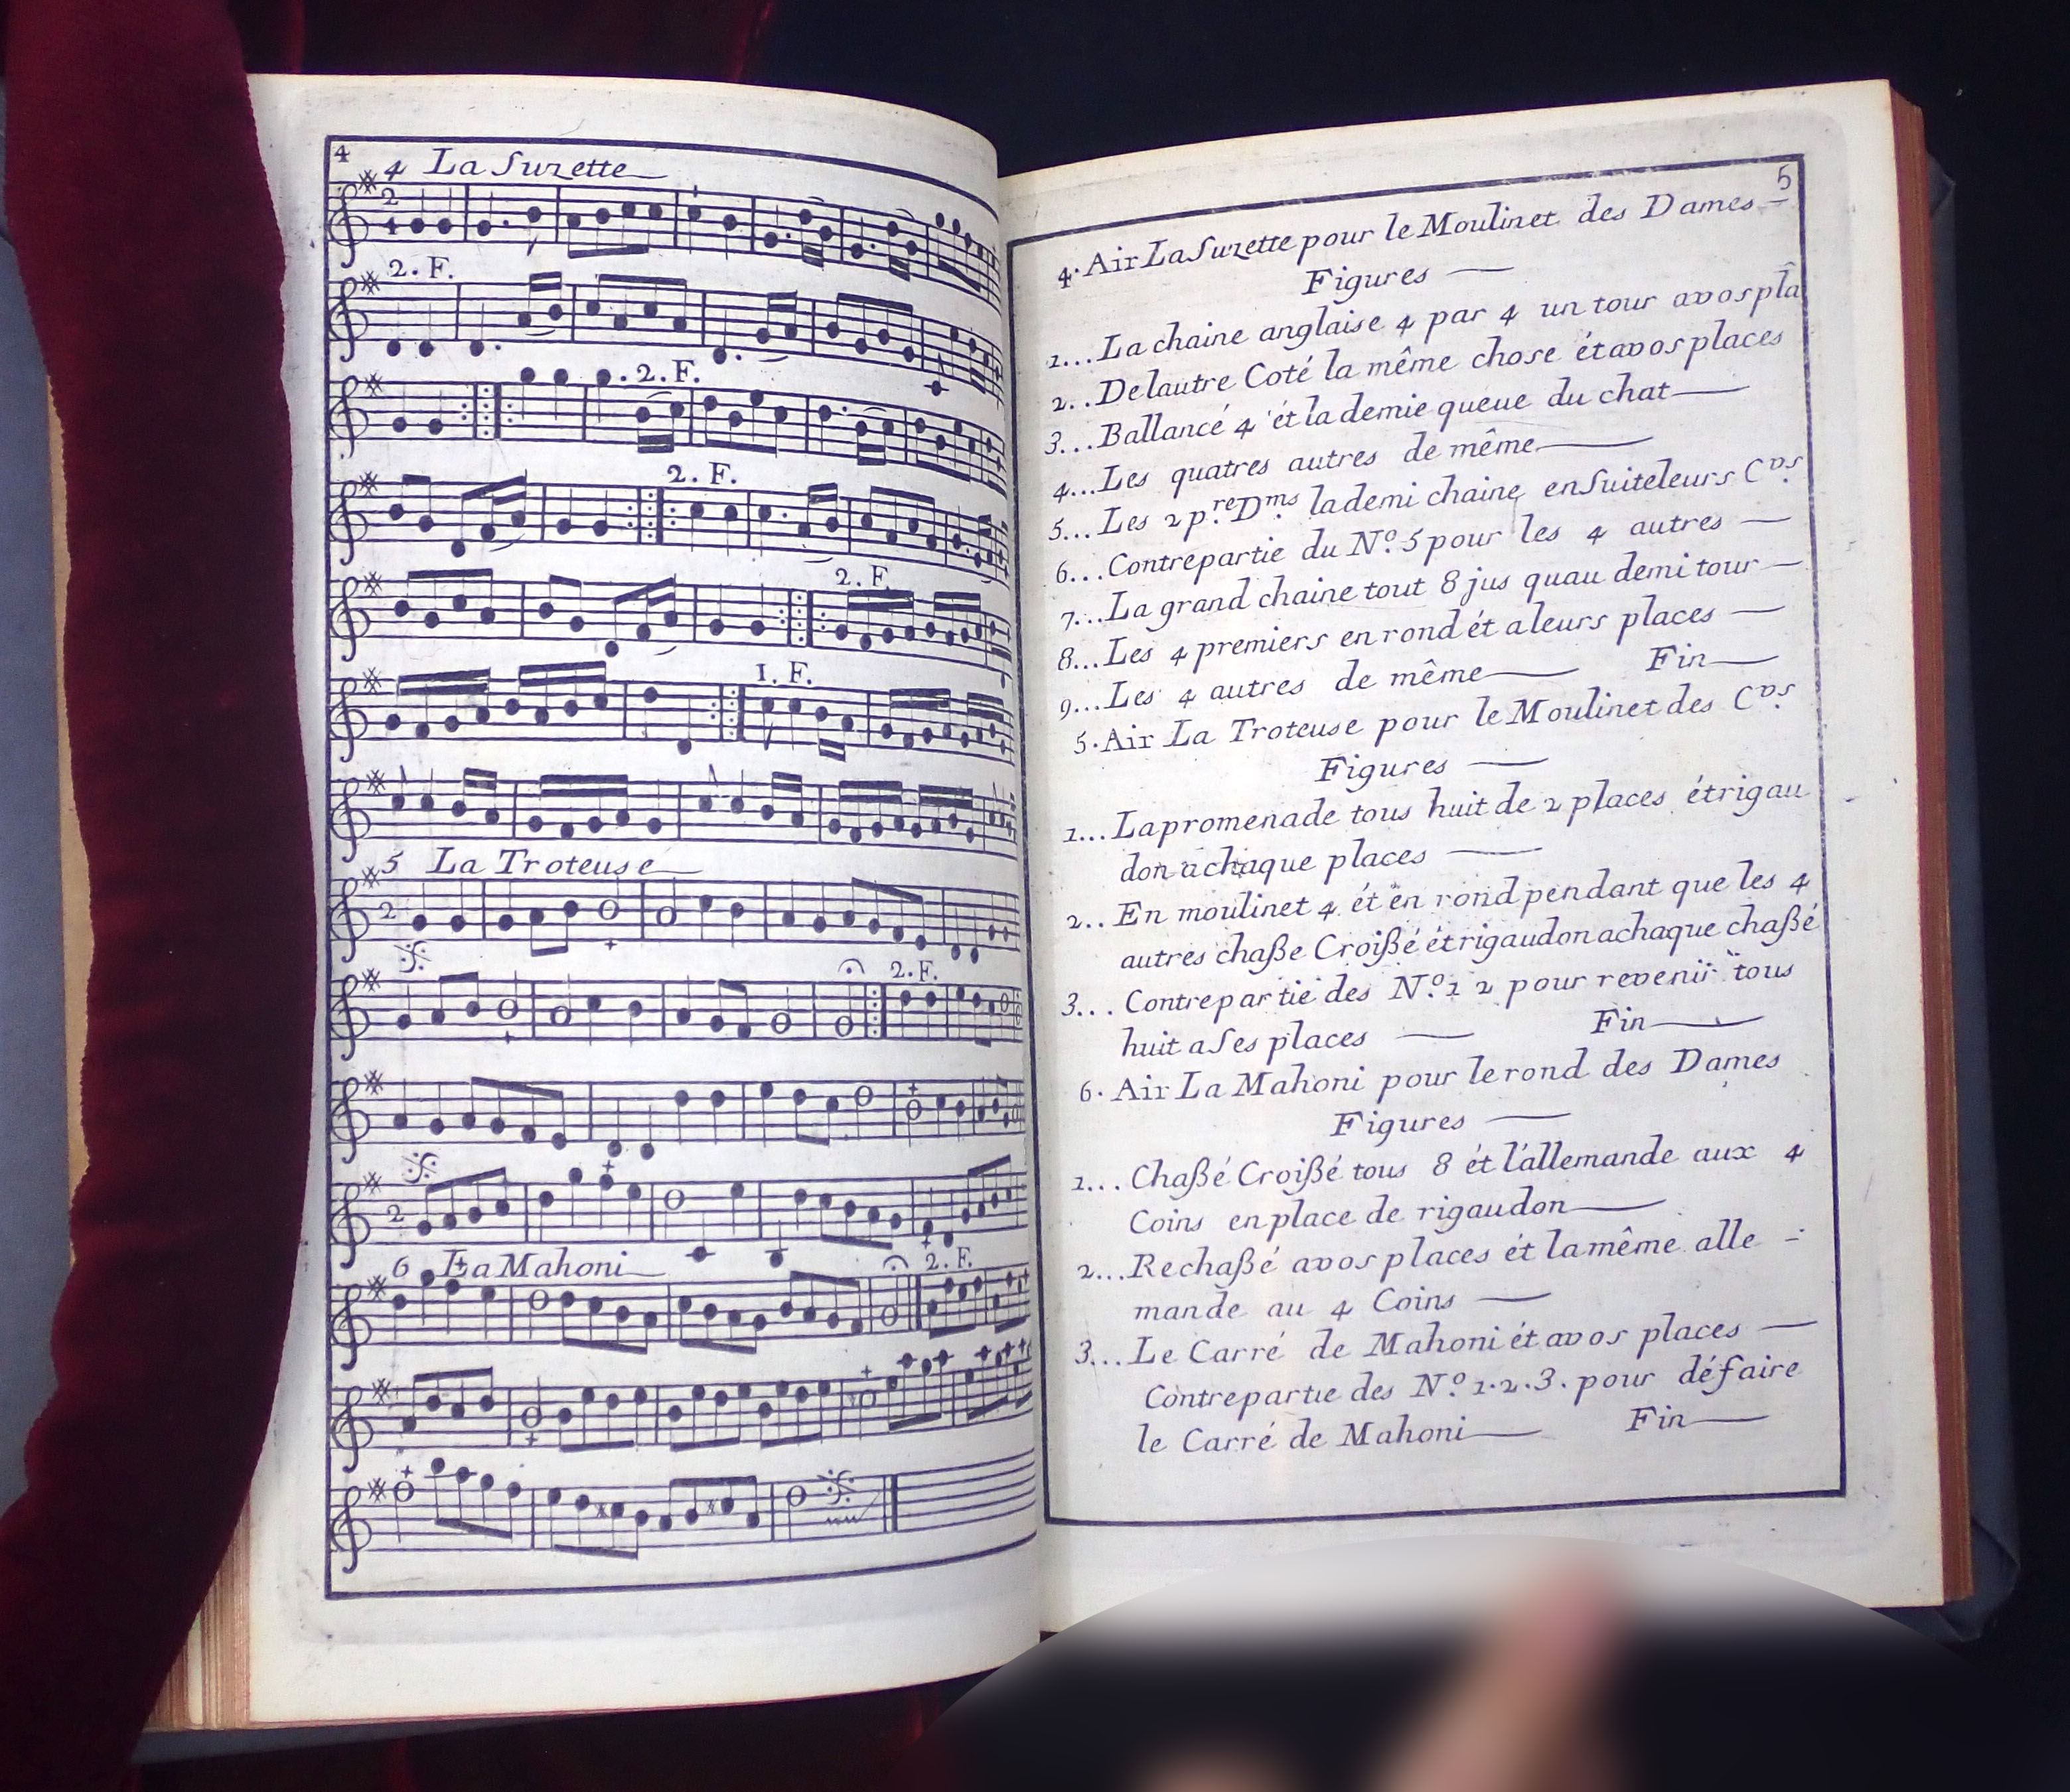 4
4 La Suzette
2
4
2. F.
2. F.
2. F.
2. F.
1. F.
5 La Troteuse
2
2. F.
2
6 La Mahoni
2. F.
5
4. Air La Suzette pour le Moulinet des Dames
Figures
1... La chaine anglaise 4 par 4 un tour avos pla
2.. De lautre Coté la même chose ét avos places
3... Ballancé 4 ét la demie queue du chat
4... Les quatres autres de même
5... Les 2 p.re D.ms la demi chaine en Suite leurs C.vs
6... Contrepartie du N.o 5 pour les 4 autres
7... La grand chaine tout 8 jus quau demi tour
8... Les 4 premiers en rond ét a leurs places
9... Les 4 autres de même Fin
5. Air La Troteuse pour le Moulinet des C.vs
Figures
1... La promenade tous huit de 2 places ét rigau
don a chaque places
2.. En moulinet 4 ét en rond pendant que les 4
autres chaße Croißé ét rigaudon a chaque chaßé
3... Contrepartie des N.o 1 2 pour revenir tous
huit a Ses places Fin
6. Air La Mahoni pour le rond des Dames
Figures
1... Chaßé Croißé tous 8 ét l'allemande aux 4
Coins en place de rigaudon
2... Rechaßé avos places ét la même alle
mande au 4 Coins
3... Le Carré de Mahoni ét avos places
Contrepartie des N.o 1.2.3. pour défaire
le Carré de Mahoni Fin